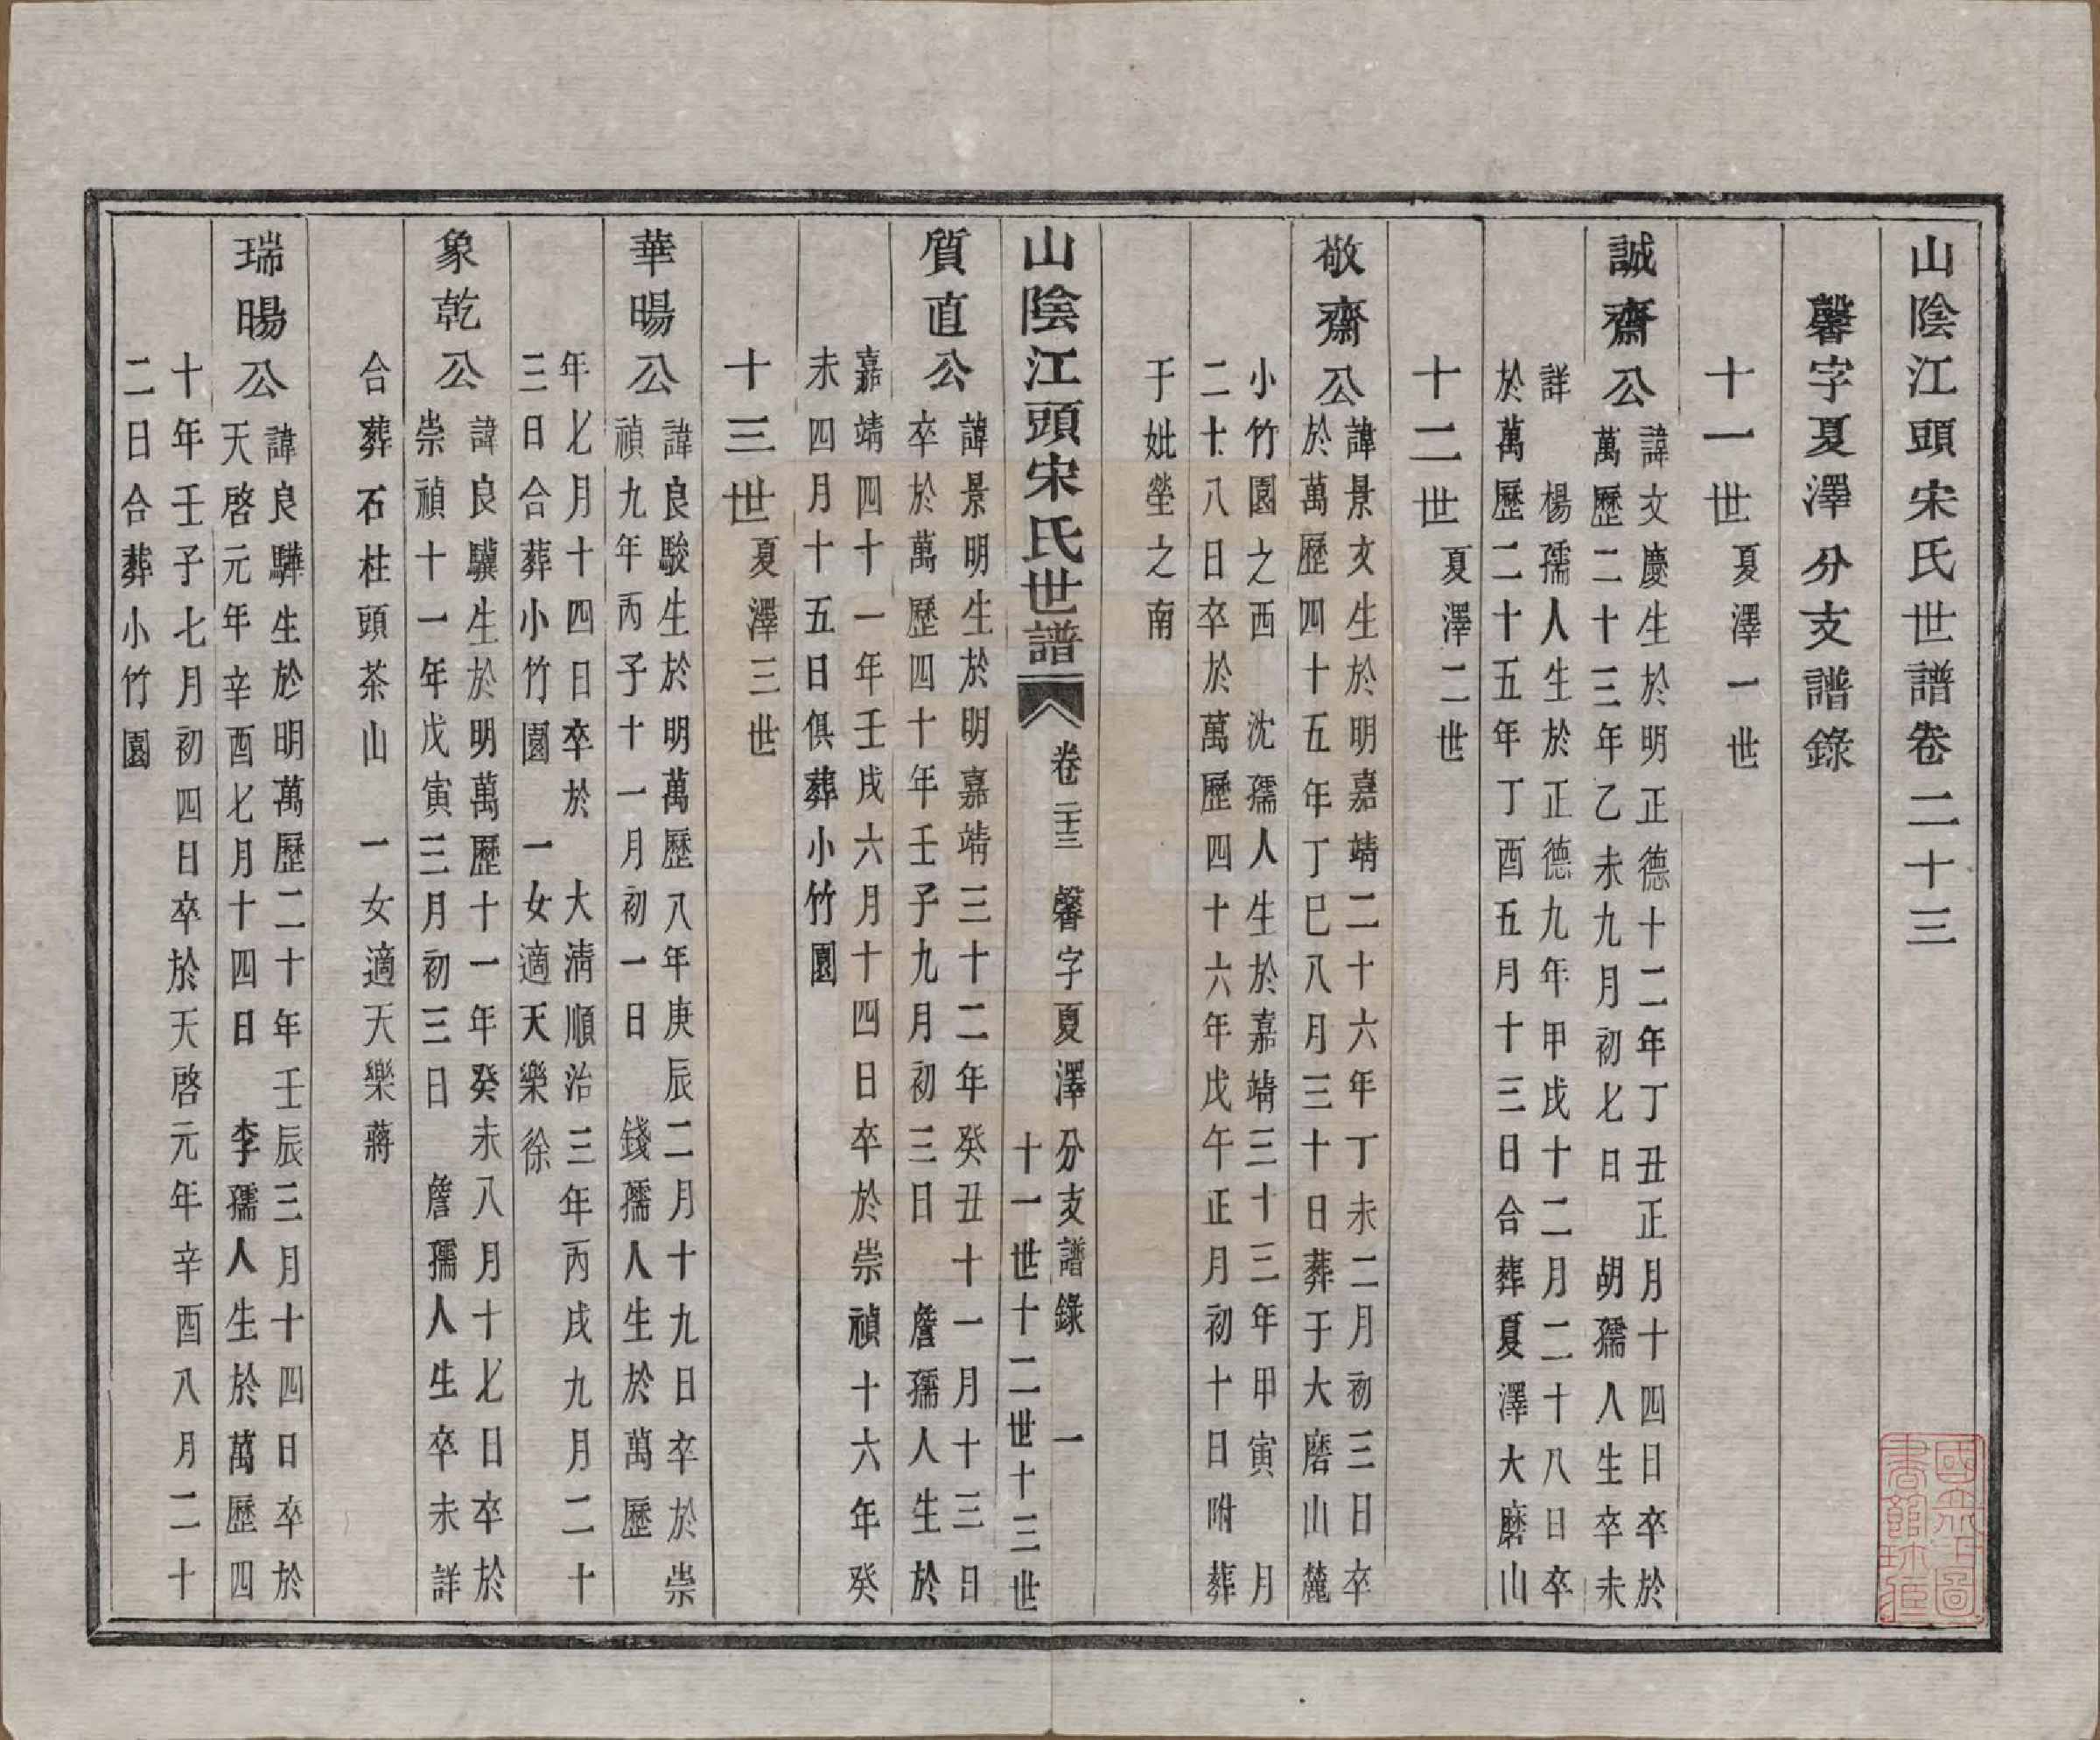 山陰江頭宋氏世譜卷二十三
馨字夏澤分支譜錄
十一世夏澤一世
誠齋公諱文慶生於明正德十二年丁丑正月十四日卒於
萬歷二十三年乙未九月初七日　胡孺人生卒未
詳　楊孺人生於正德九年甲戌十二月二十八日卒
於萬歷二十五年丁酉五月十三日合葬夏澤大磨山
十二世夏澤二世
敬齋公諱景文生於明嘉靖二十六年丁未二月初三日卒
於萬歷四十五年丁巳八月三十日葬于大磨山麓
小竹園之西　沈孺人生於嘉靖三十三年甲寅　月
二十八日卒於萬歷四十六年戊午正月初十日附葬
于妣塋之南
山陰江頭宋氏世譜
卷二十三　馨字夏澤分支譜錄　一
十一世十二世十三世
質直公諱景明生於明嘉靖三十二年癸丑十一月十三日
卒於萬歷四十年壬子九月初三日　詹孺人生於
嘉靖四十一年壬戌六月十四日卒於崇禎十六年癸
未四月十五日俱葬小竹園
十三世夏澤三世
華暘公諱良駿生於明萬歷八年庚辰二月十九日卒於崇
禎九年丙子十一月初一日　錢孺人生於萬歷
年七月十四日卒於　大清順治三年丙戌九月二十
三日合葬小竹園　一女適天樂徐
象乾公諱良驥生於明萬歷十一年癸未八月十七日卒於
崇禎十一年戊寅三月初三日　詹孺人生卒未詳
合葬石柱頭茶山　一女適天樂蔣
瑞暘公諱良驊生於明萬歷二十年壬辰三月十四日卒於
天啓元年辛酉七月十四日　李孺人生於萬歷四
十年壬子七月初四日卒於天啓元年辛酉八月二十
二日合葬小竹園